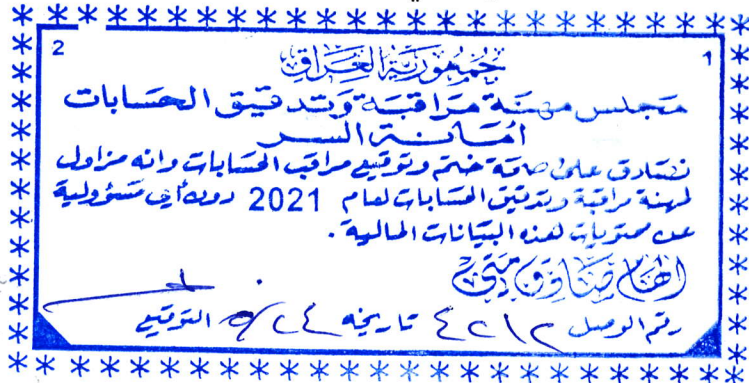 2 1
جمهورية العراق
مجلس مهنة مراقبة وتدقيق الحسابات
أمانة السر
نصادق على صحة ختم وتوقيع مراقب الحسابات وانه مزاول
لمهنة مراقبة وتدقيق الحسابات لعام 2021 دون أي مسؤولية
عن محتويات هذه البيانات المالية.
الهام صادق متي
رقم الوصل ٤٢١٢ تاريخه ٥/٢٤ التوقيع